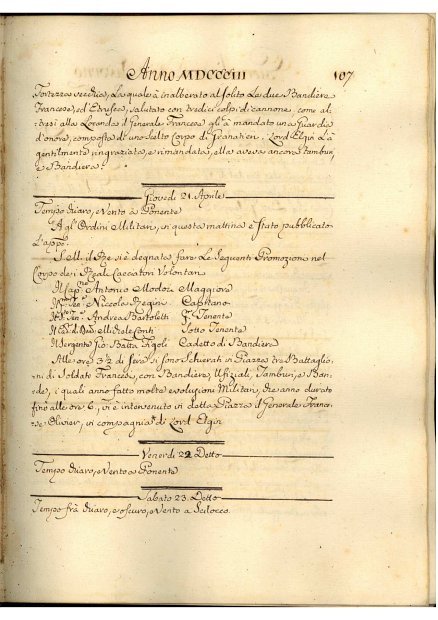 Anno MDCCCIII 107
Fortezza vecchia, la quale à inalberato al solito le due Bandiere
Francese, ed Etrusca, salutato con tredici colpi di cannone, come al-
tresi alla Locanda il Generale Francese gli à mandato una Guardia
d'onore, composta di uno scelto Corpo di Granatieri. Lord Elgin l'à
gentilmente ringraziata, e rimandata, ella aveva ancora Tamburi,
e Bandiera.
Giovedi 21. Aprile
Tempo chiaro, e Vento a Ponente
Agl'Ordini Militari, in questa mattina è stato pubblicato
L'app:
S. M. il Re si è degnata fare le seguenti Promozioni nel
Corpo dei Reali Cacciatori Volontari
Il Cap:ne Antonio Modoi Maggiore
Il P:mo Ten:e Niccola Regini Capitano
Andrea Bartoletti P:mo Tenente
Michele Conti Sotto Tenente
Il Sergente Gio: Batta Figoli Cadetto di Bandiera
Alle ore 3½ di sera si sono schierati in Piazza tre Battaglio-
ni di Soldati Francesi, con Bandiere, Ufiziali, Tamburi, e Ban-
de, i quali anno fatto molte evoluzioni Militari, che anno durato
fino alle ore 6, vi è intervenuto in detta Piazza il Generale France-
se Olivier, in compagnia di Lord Elgin
Venerdi 22 Detto
Tempo chiaro, e Vento a Ponente
Sabato 23. Detto
Tempo frà chiaro, e oscuro, e Vento a Scilocco.